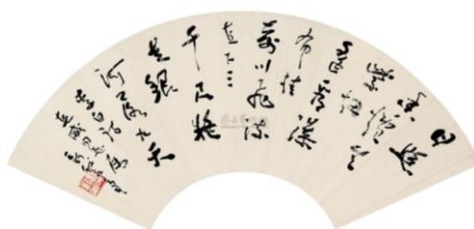 日照
香爐生
紫烟遥
看瀑
布挂
前川飛流
直下三
千尺疑
是銀
河落九天
李白詩